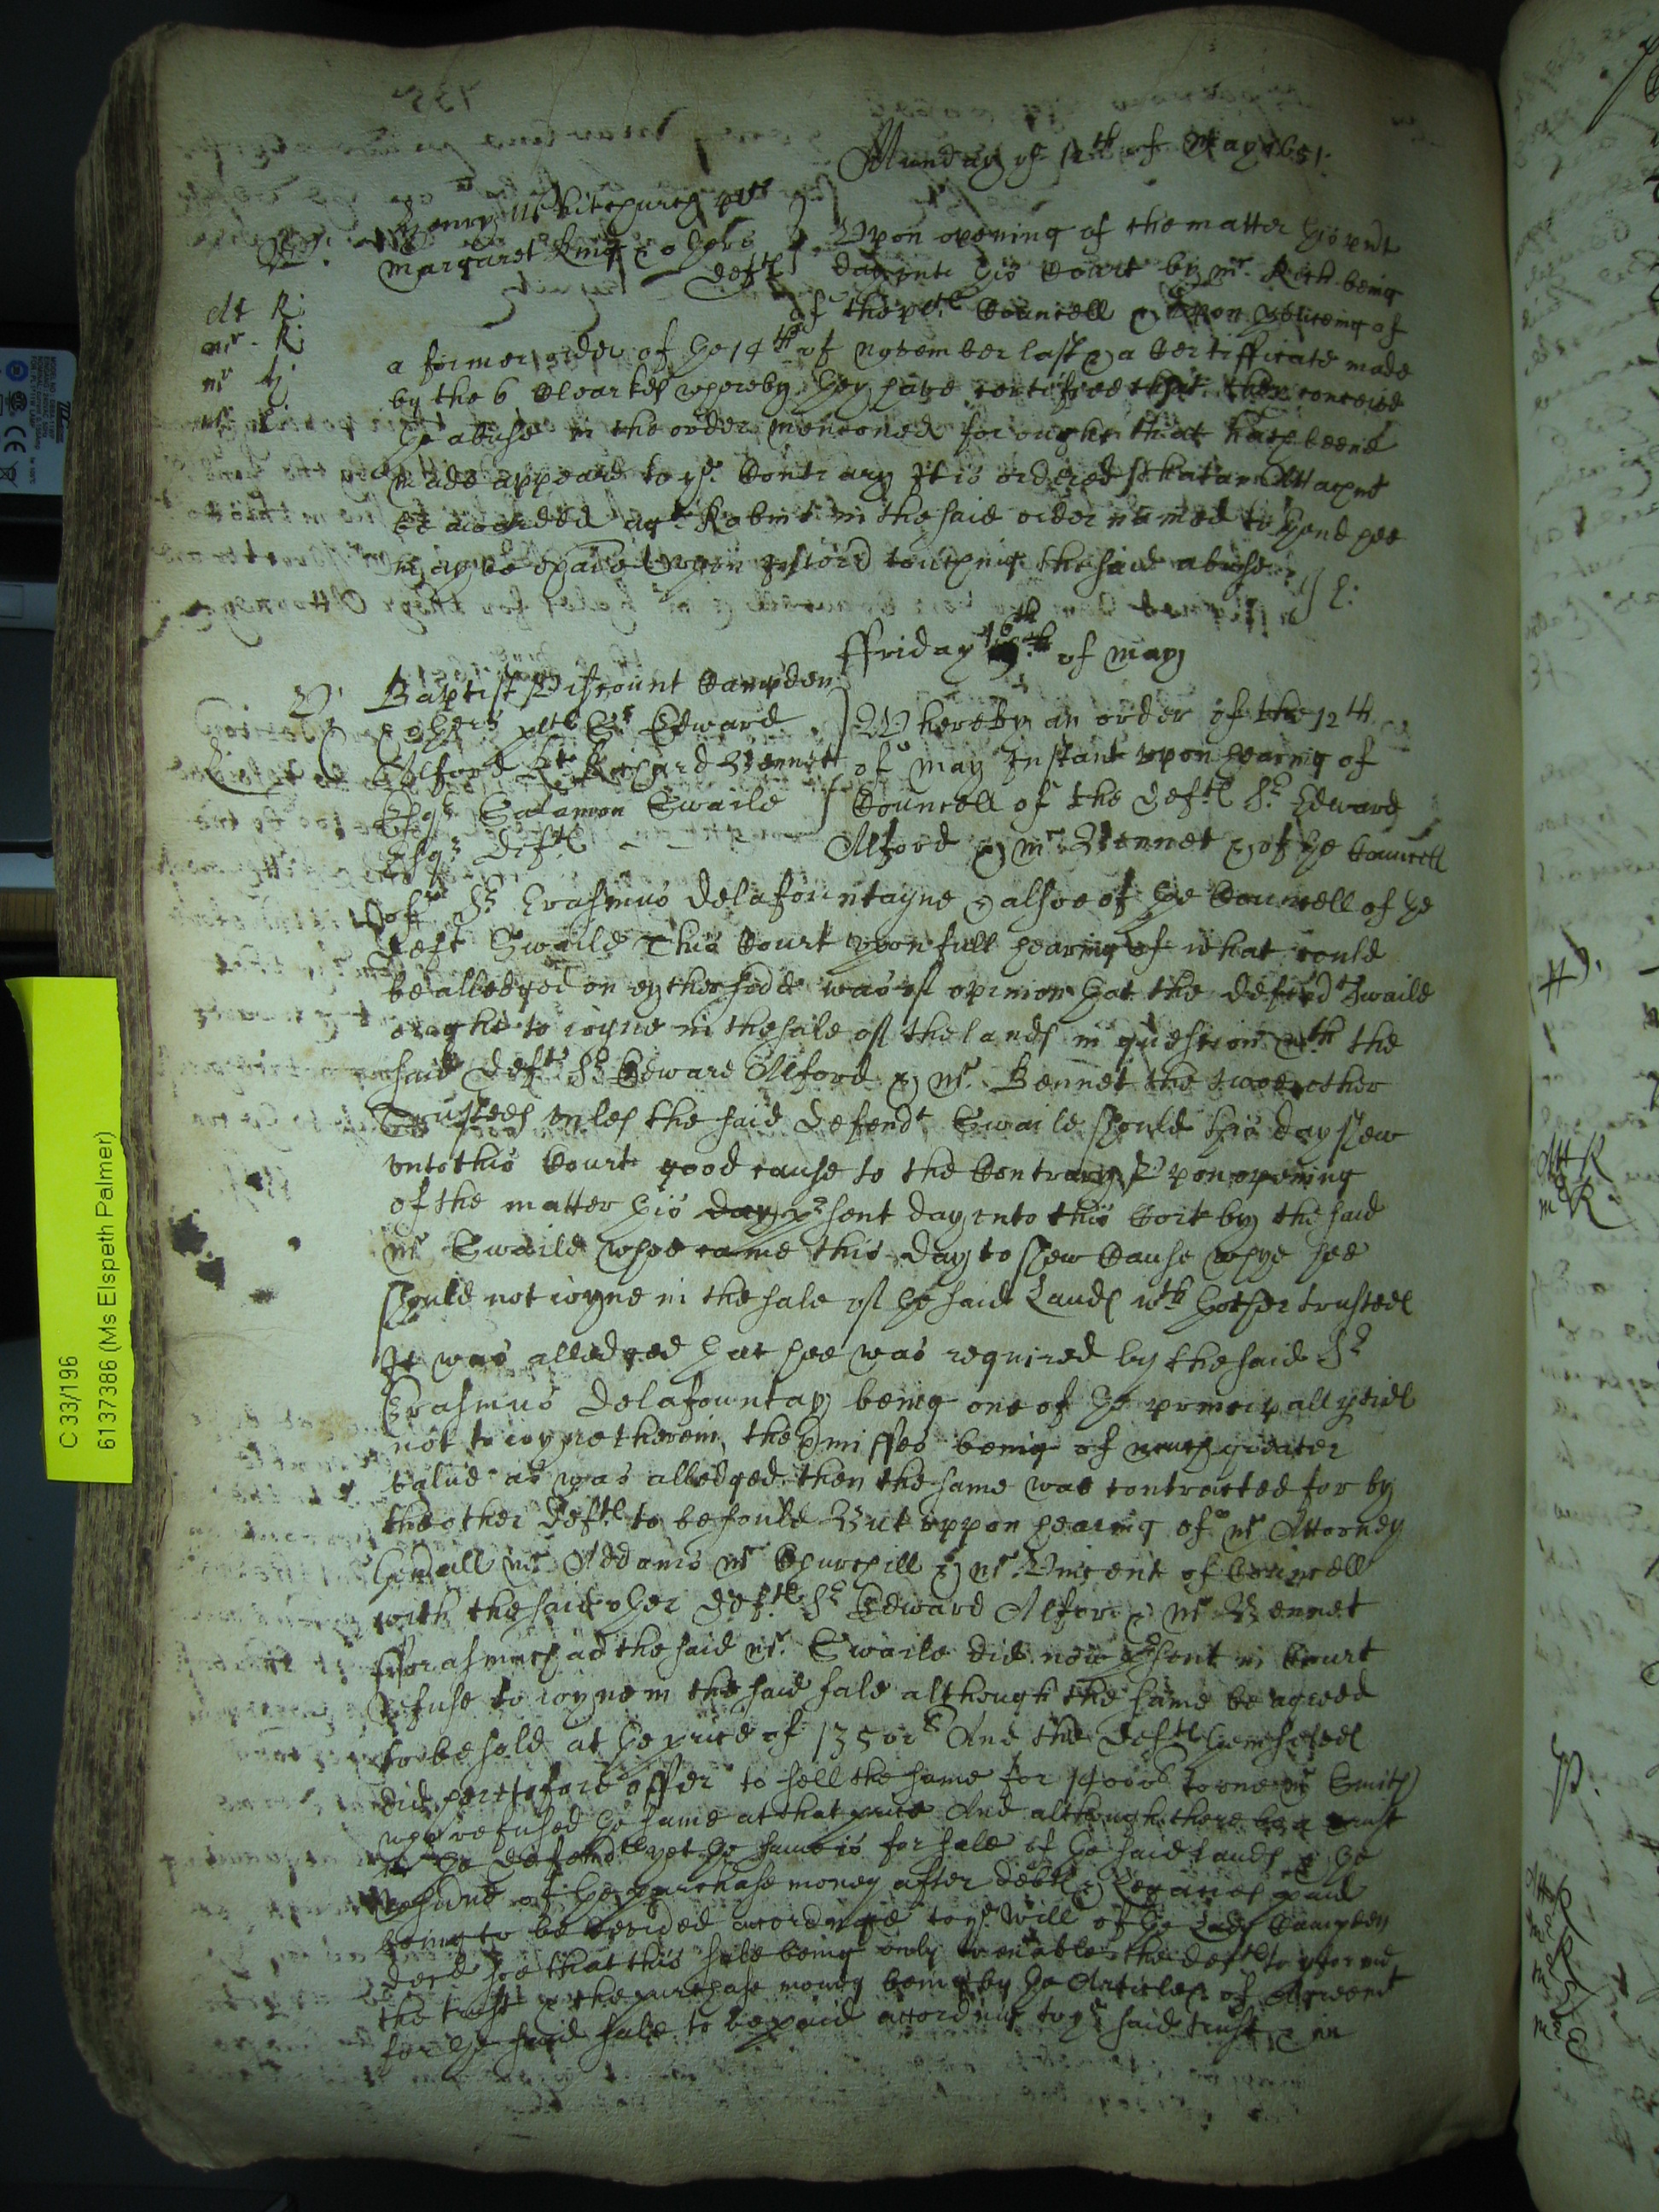 Munday ye 12th of May 1651:
Henry Whitchurch plt
Margaret King & others
deftes
Upon opening of the matter this pnt
day unto this Court by mr. Rich being
of the plts Councell & upon reading of
a former order of the 14th of November last & a Certifficate made
by the 6 Clearkes whereby they have certifyed that they conceive
the abuse in the order menconed for ought that hath beene
made appeare to ye Contrary It is ordered that an Attachmt
be awarded agt Robins in the said order named to thend hee
may be exaied upon Interr touching the said abuse
ffriday 16th of may
Baptist Viscount Campden
& others plts Sr Edward
Alford Kt Richard Bennett
Esqr Salamon Swaile
Esqr defts
Whereby an order of the 12th
of may Instant upon hearing of
Councell of the defts Sr Edward
Alford & mr Bennet & of the Councell
of Sr Erasmus delafountayne & alsoe of the Councell of the
deft Swaile This Court upon full hearing of what could
be alledged on eyther side was of opinion that the defend Swaile
ought to ioyne in the sale of the lands in question wth the
said defts Sr Edward Alford & mr. Bennet the twoe other
Trustees unles the said defendt Swaile should this day shew
unto this Court good cause to the Contrary Upon opening
of the matter this day psent day unto this Cort by the said
mr Swaile whoe came this day to shew Cause whye hee
should not ioyne in the sale of the said Lands wth thother trustees
It was alledged that hee was required by the said Sr
Erasmus delafountay being one of the principall
not to ioyne therein, the pmisses being of much greater
value as was alledged then the same was contracted for by
the other defts to be sould But uppon hearing of mr Attorney
Genall mr Addams mr Churchill & mr. Vincent of Councell
with the said other defts Sr Edward Alford & mr Bennet
fforasmuch as the said mr. Swaile did now psent in Court
refuse to ioyne in the said sale although the same be agreed
to be sold at the price of 13500l And the defts themselves
did heretofore offer to sell the same for 14000l to one mr Smith
who refused the same at that price And although there be a trust
in the defendts yet the same is for sale of the said lands & the
residue of the purchase money after debts & Legacies paid
being to be devided according to ye will of the Lady Campden
decd soe that this sale being only to enable the defts to pforme
the trust & the purchase money being by the Articles of Agreemt
for the said sale to be paid according to ye said trust & in
C 33/196
6137386 (Ms Elspeth Palmer)